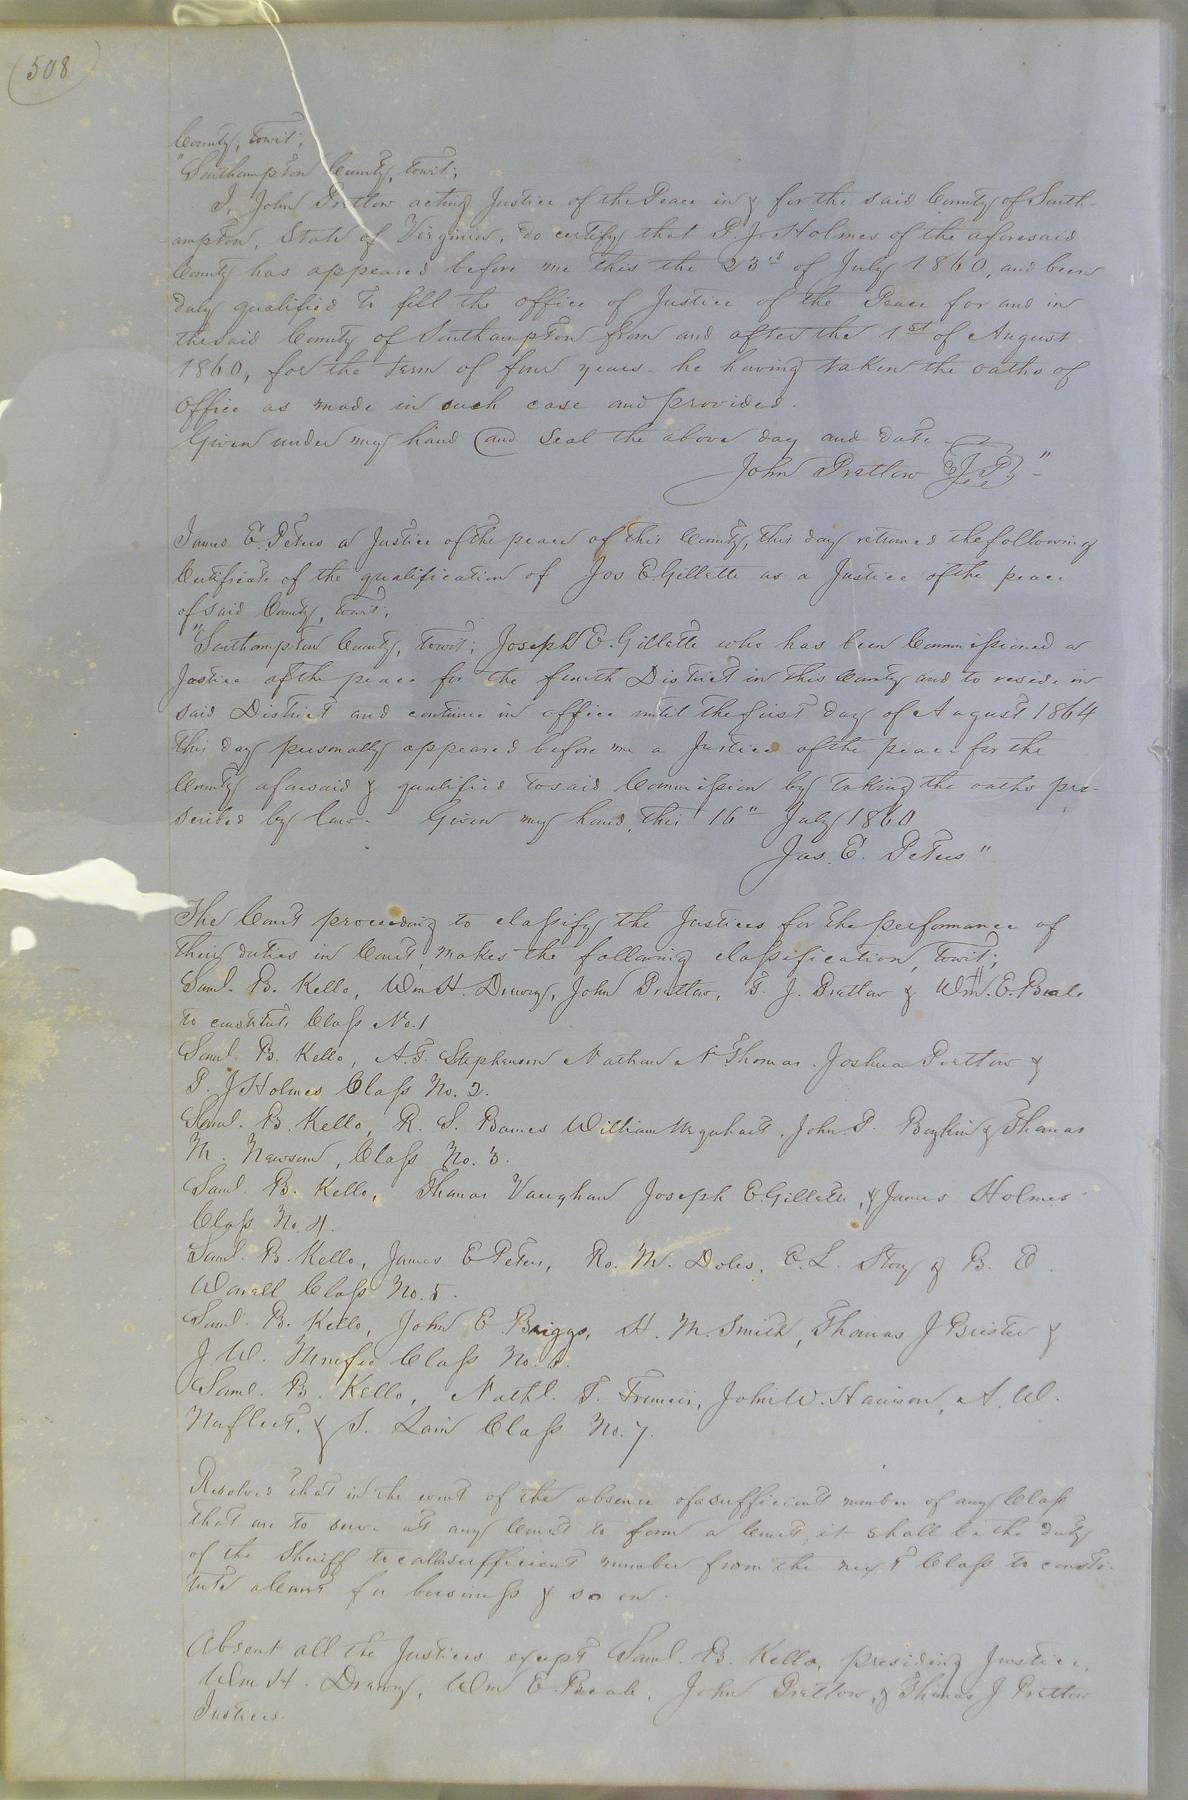 508
County, towit;
"Southampton County, towit;
I, John Pretlow acting Justice of the Peace in & for the said County of South-
ampton, State of Virginia, do certify that P. J. Holmes of the aforesaid
County has appeared before me this the 23rd of July 1860, and been
duly qualified to fill the office of Justice of the Peace for and in
the said County of Southampton from and after the 1st of August
1860, for the term of four years - he having taken the oaths of
Office as made in such case and provided.
Given under my hand and Seal the above day and date
John Pretlow J.P. "
James E. Peters a Justice of the peace of this County, this day returned the following
Certificate of the qualification of Jos E. Gillette as a Justice of the peace
of said County, towit;
"Southampton County, towit; Joseph E. Gillette who has been Commissioned a
Justice of the peace for the fourth District in this County and to reside in
said District and continue in office until the first day of August 1864
this day personally appeared before me a Justice of the peace for the
County aforesaid & qualified to said Commission by taking the oaths pre-
scribed by law. Given my hand, this 16" July 1860
Jas. E. Peters"
The Court proceeding to classify the Justices for the performance of
their duties in Court, makes the following classification, towit;
Saml. B. Kello, Wm H. Drewry, John Pretlow, T. J. Pretlow & Wm. E. Beale
to constitute Class No. 1
Saml. B. Kello, A. T. Stephenson Nathan N Thomas. Joshua Pretlow &
P. J Holmes Class No. 2.
Saml. B. Kello, R. S. Barnes William Urquhart, John. P. Boykin & Thomas
M. Newsom, Class No. 3.
Saml. B. Kello, Thomas Vaughan Joseph E. Gillette, & James Holmes
Class No. 4.
Saml. B. Kello, James E Peters, Ro. M. Doles, E. L. Story & B. E.
Worrell Class No. 5.
Saml. B. Kello, John E Briggs, H. M. Smith, Thomas J Brister &
J. W. Class No. 6.
Saml. B. Kello, Nathl. T. Francis, John W. Harrison, A. W.
Norfleet, & S. Lain Class No. 7.
Resolved that in the event of the absence of a sufficient number of any Class
that are to serve at any Court to form a Court, it shall be the duty
of the Sheriff to call a sufficient number from the next Class to consti-
tute a Court for business & so on.
Absent all the Justices except Saml. B. Kello, presiding Justice,
Wm H. Drewry, Wm E. Beale, John Pretlow, & Thomas J Pretlow
Justices.